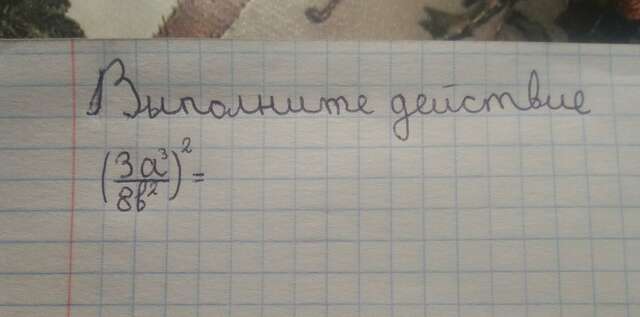 Выполните действие
(3a³/8b²)² =